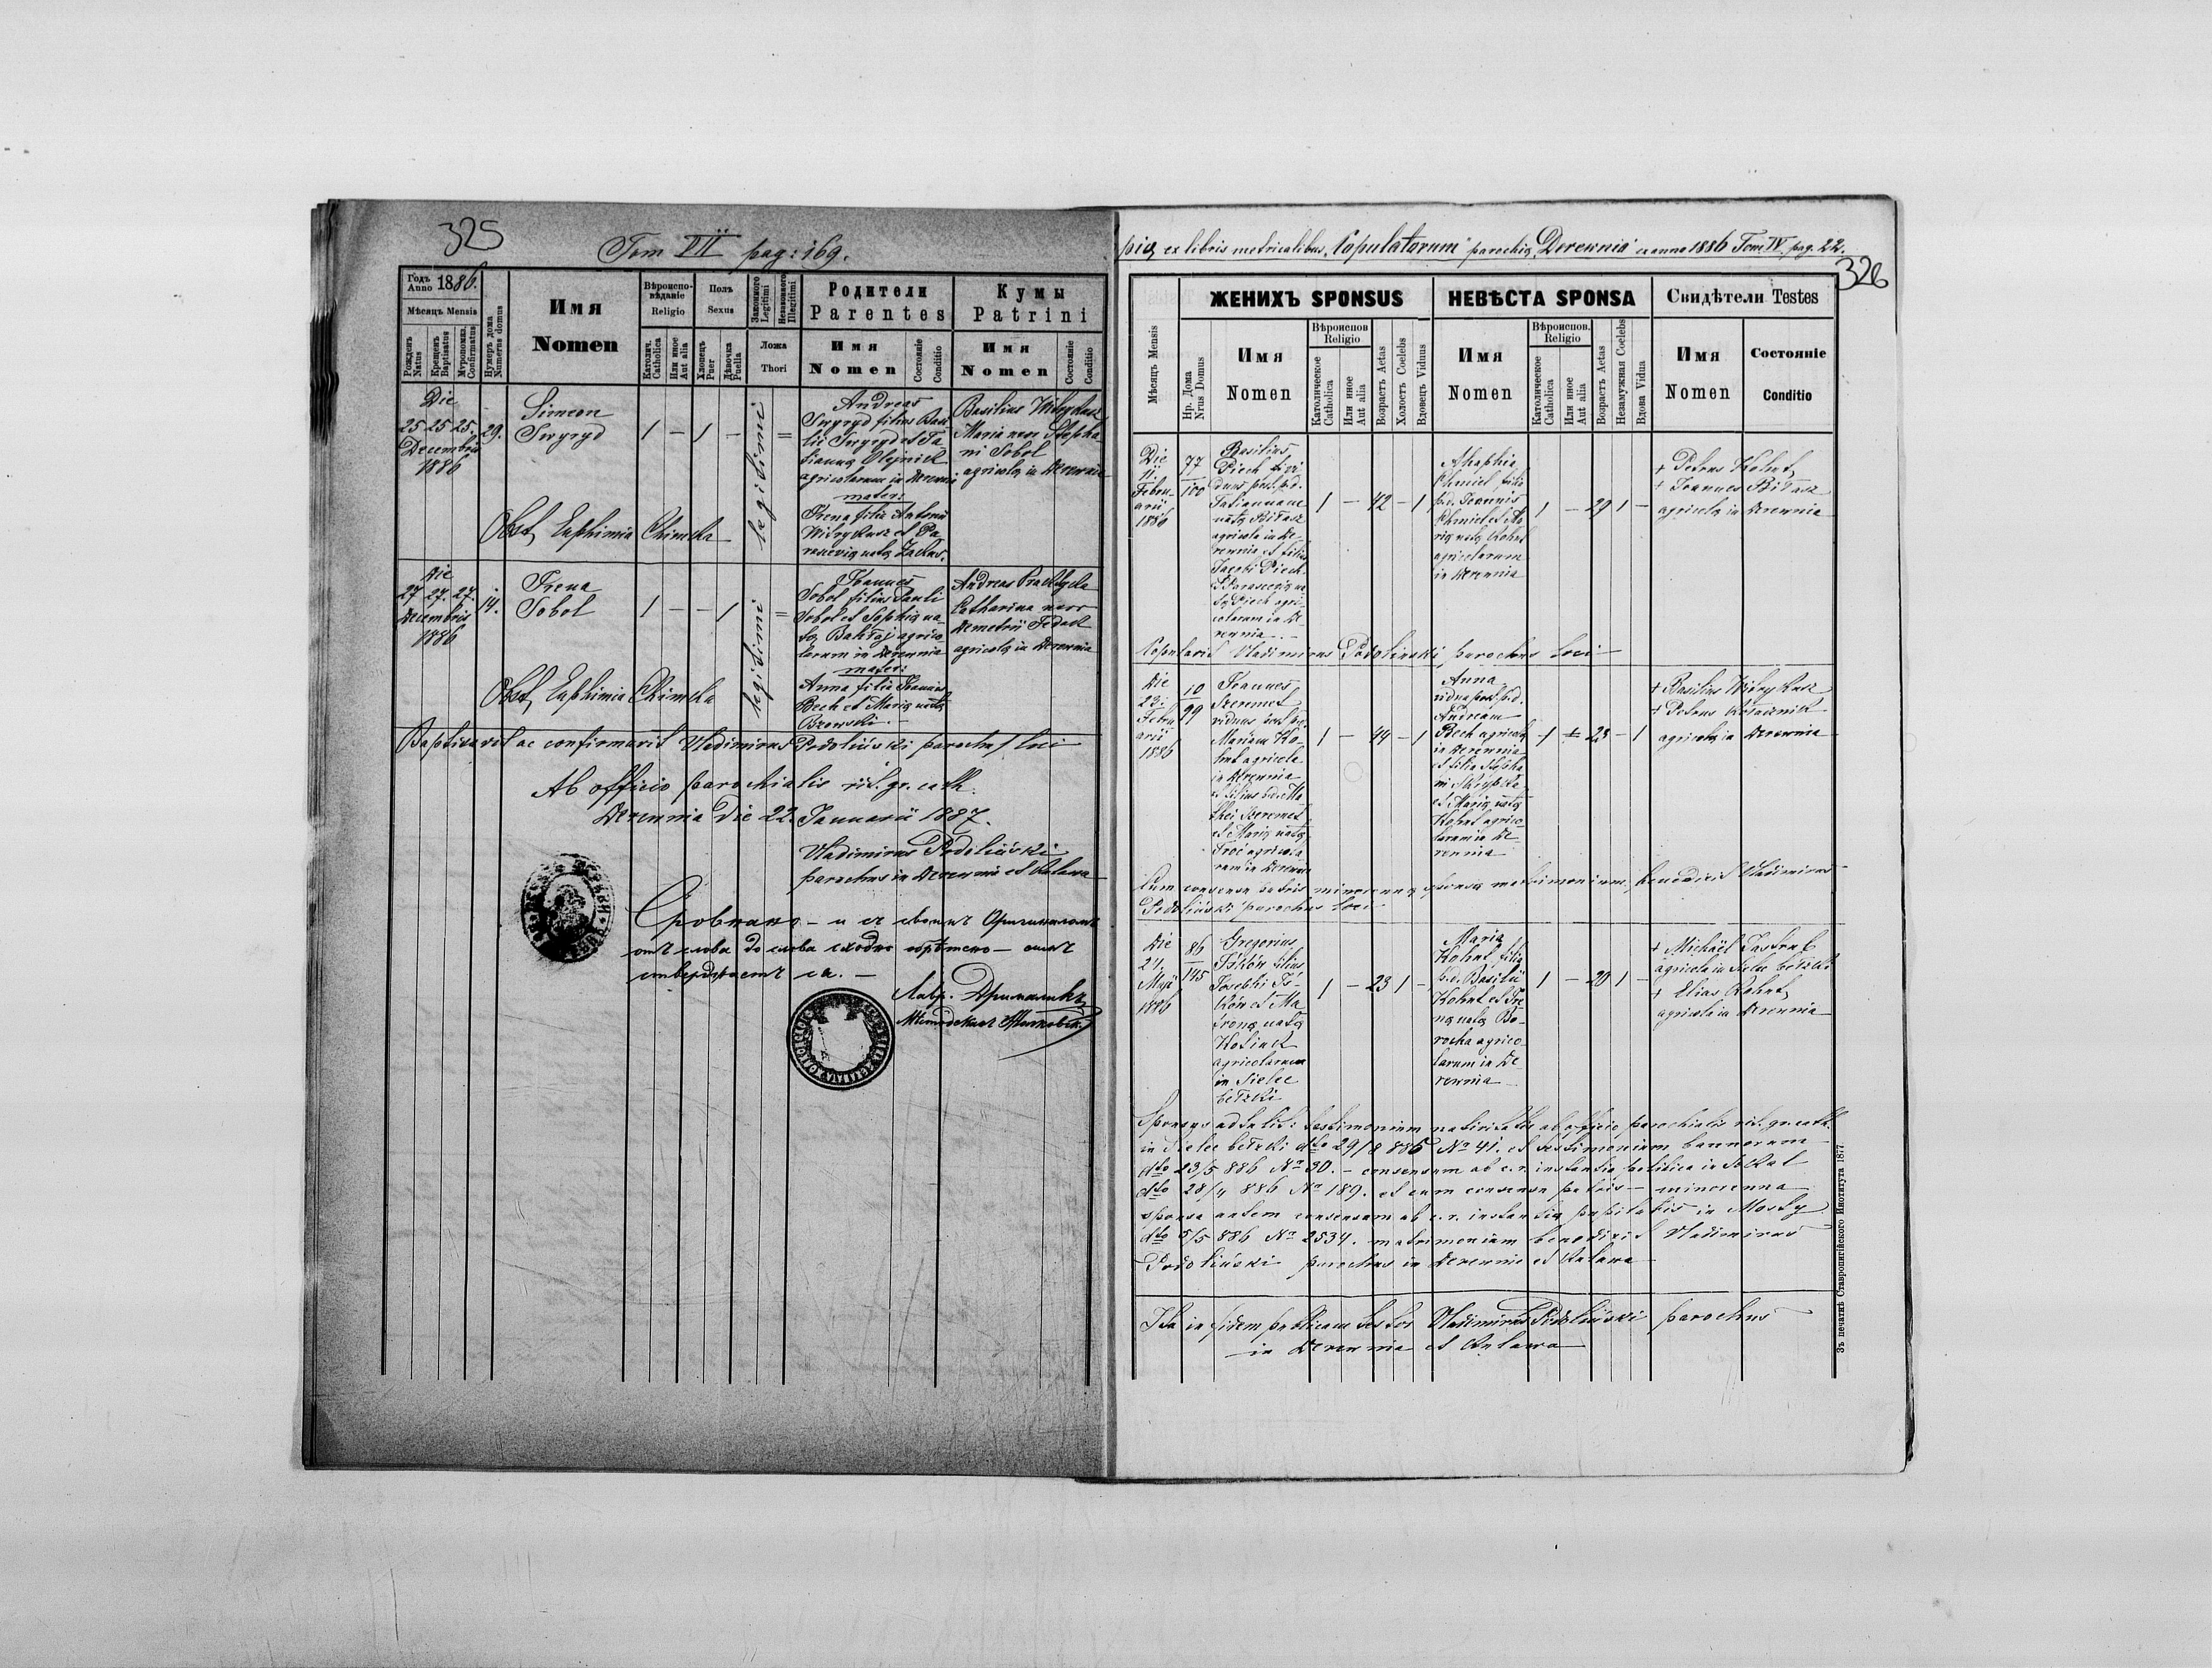 325
Tom VII pag: 169.
Годъ Anno 1886.
Мѣсяцъ Mensis
Рожденъ Natus
Крещенъ Baptisatus
Мѵропомаз. Confirmatus
Нумеръ дома Numerus domus
Имя Nomen
Вѣроиспо-вѣданіе Religio
Католич. Catholica
Или иное Aut alia
Полъ Sexus
Хлопецъ Puer
Дѣвочка Puella
Законного Legitimi
Незаконного Illegitimi
Ложа Thori
Родители Parentes
Имя Nomen
Состояніе Conditio
Кумы Patrini
Имя Nomen
Состояніе Conditio
Die
25 25 25.
Decembris
1886
29.
Simeon
Swyryd
1 – 1 –
legitimi
=
Andreas
Swyryd filius Basi-
lii Swyryd et Ta-
tianna Olejnick
agricolarum in Derewnia
mater:
Irena filia Antonii
Widrykasz et Pa-
Basilius
Maria uxor Stepha-
ni Sobol
agricola in Derewnia
Obst. Euphimia Chimka
Die
27 27. 27.
Decembris
1886
14.
Irena
Sobol
1 – – 1
legitimi
=
Joannes
Sobol filius Pauli
Sobol et Sophia na-
ta agrico-
larum in Derewnia
mater:
Anna filia Joannis
Bech et Maria nata
Andreas
Catharina uxor
Demetrii Fedak
agricola in Derewnia
Obst. Euphimia Chimka
Baptisavit ac confirmavit Vladimirus Podoliński parochus loci
Ab officio parochialis rit. gr. cath.
Derewnia Die 22. Januarii 1887.
Vladimirus Podoliński
parochus in Derewnia et
отъ слова до слова сходно
ся. –
326
pia ex libris metricalibus „Copulatorum" parochia „Derewnia" ex anno 1886 Tom IV. pag. 22.
Мѣсяцъ Mensis
ЖЕНИХЪ SPONSUS
Нр. Дома Nrus Domus
Имя Nomen
Вѣроиспов Religio
Католическое Catholica
Или иное Aut alia
Возрастъ Aetas
Холостъ Coelebs
Вдовецъ Viduus
НЕВѢСТА SPONSA
Имя Nomen
Вѣроиспов. Religio
Католическое Catholica
Или иное Aut alia
Возрастъ Aetas
Незамужная Coelebs
Вдова Vidua
Свидѣтели Testes
Имя Nomen
Состояніе Conditio
Die
11.
Febru-
arii
1886
77
100
Basilius
Piech vi-
duus post p.d.
Tatiannam
natą Biłasz
agricola in De-
rewnia et filius
Jacobi Piech
et Parascevia na-
ta Piech agri-
colarum in De-
rewnia. –
1 – 42 – 1
Ahaphia
Chmiel filia
p.d. Joannis
Chmiel et Ma-
ria nata Kohut
agricolarum
in Derewnia
1 – 29 1 –
+ Petrus Kohut
+ Joannes Biłasz
agricola in Derewnia
Copulavit Vladimirus Podoliński parochus loci
Die
23.
Febru-
arii
1886
10
99
Joannes
Szeremet
viduus post p.d.
Mariam Ko-
hut agricola
in Derewnia
et filius p.d. Ma-
thei Szeremet
et Maria nata
Troć agricola-
rum in Derewnia
1 – 44 – 1
Anna
vidua post p.d.
Andream
Bech agricola
in Derewnia
et filia Stepha-
ni
et Maria nata
Kohut agrico-
larum in De-
rewnia
1 – 23 – 1
+ Basilius Widrykasz
+ Petrus
agricola in Derewnia
Cum consensu patris minorenna sponsa matrimonium benedixit Vladimirus
Podoliński parochus loci.
Die
24.
Maji
1886
86
145
Gregorius
filius
Josephi
et Ma-
trona nata
agricolarum
in Sielec
bełzki
1 – 23 1 –
Maria
Kohut filia
p.d. Basilii
Kohut et Ire-
na nata Bo-
rocha agrico-
larum in De-
rewnia
1 – 20 1 –
+ Michaël Jastrub
agricola in Sielec bełzki
+ Elias Kohut
agricola in Derewnia
Sponsus adtulit: testimonium nativitatis ab officio parochialis rit. gr. cath.
in Sielec bełzki dto 29/8 885 No 41. et testimonium bannorum
dto 23/5 886 No 30. – consensum ab c.r. instantia politica in Sokal
dto 28/4 886 No 189. et cum consensu patris – minorenna
sponsa autem consensum ab c.r. instantia pupilaris in Mosty
dto 5/5 886 No 2534. matrimonium benedixit Vladimirus
Podoliński parochus in Derewnia et
Ita in fidem publicam testor Vladimirus Podoliński parochus
in Derewnia et
Зъ печатнѣ Ставропигійского Института 1877.